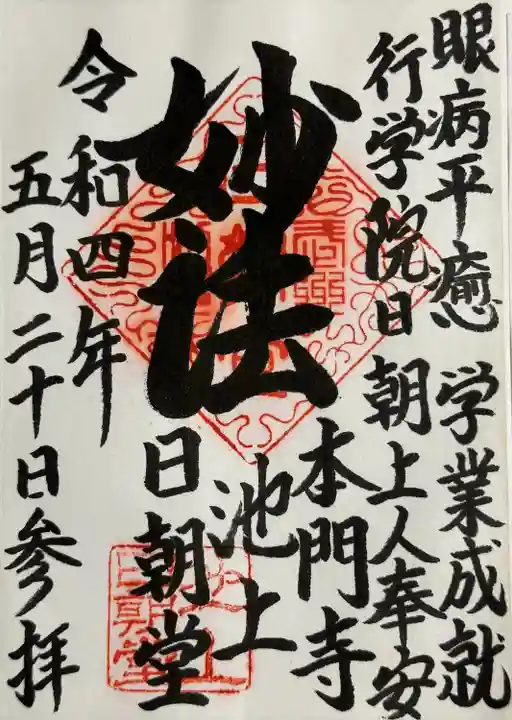 眼病平癒 学業成就
行学院日朝上人奉安
妙法
本門寺
池上
日朝堂
令和四年
五月二十日参拝
日朝堂